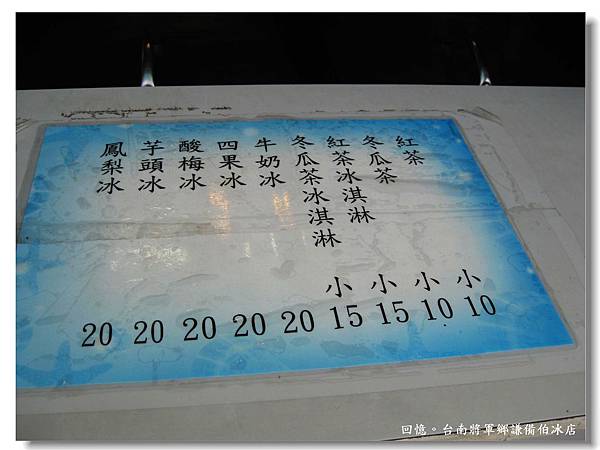 紅茶 小10
冬瓜茶 小10
紅茶冰淇淋 小15
冬瓜茶冰淇淋 小15
牛奶冰 20
四果冰 20
酸梅冰 20
芋頭冰 20
鳳梨冰 20
回憶。台南將軍鄉謙備伯冰店